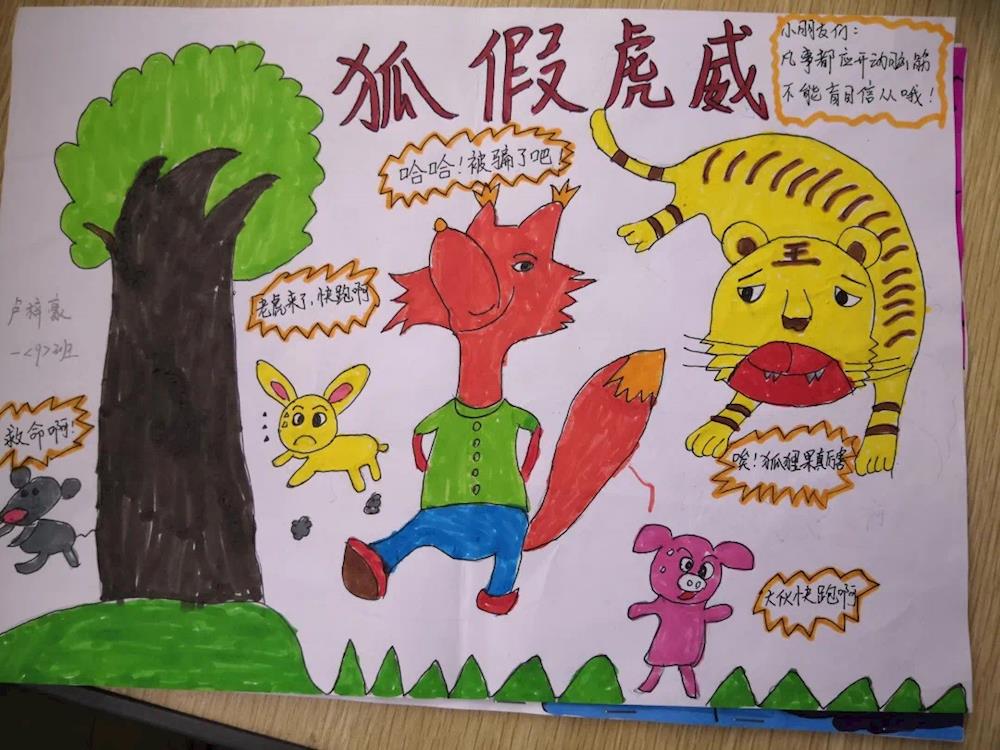 狐假虎威
小朋友们：
凡事都应开动脑筋
不能盲目信从哦！
哈哈！被骗了吧！
老虎来了，快跑啊
卢梓豪
一<9>班
救命啊！
唉！狐狸果真厉害
大伙快跑啊
王